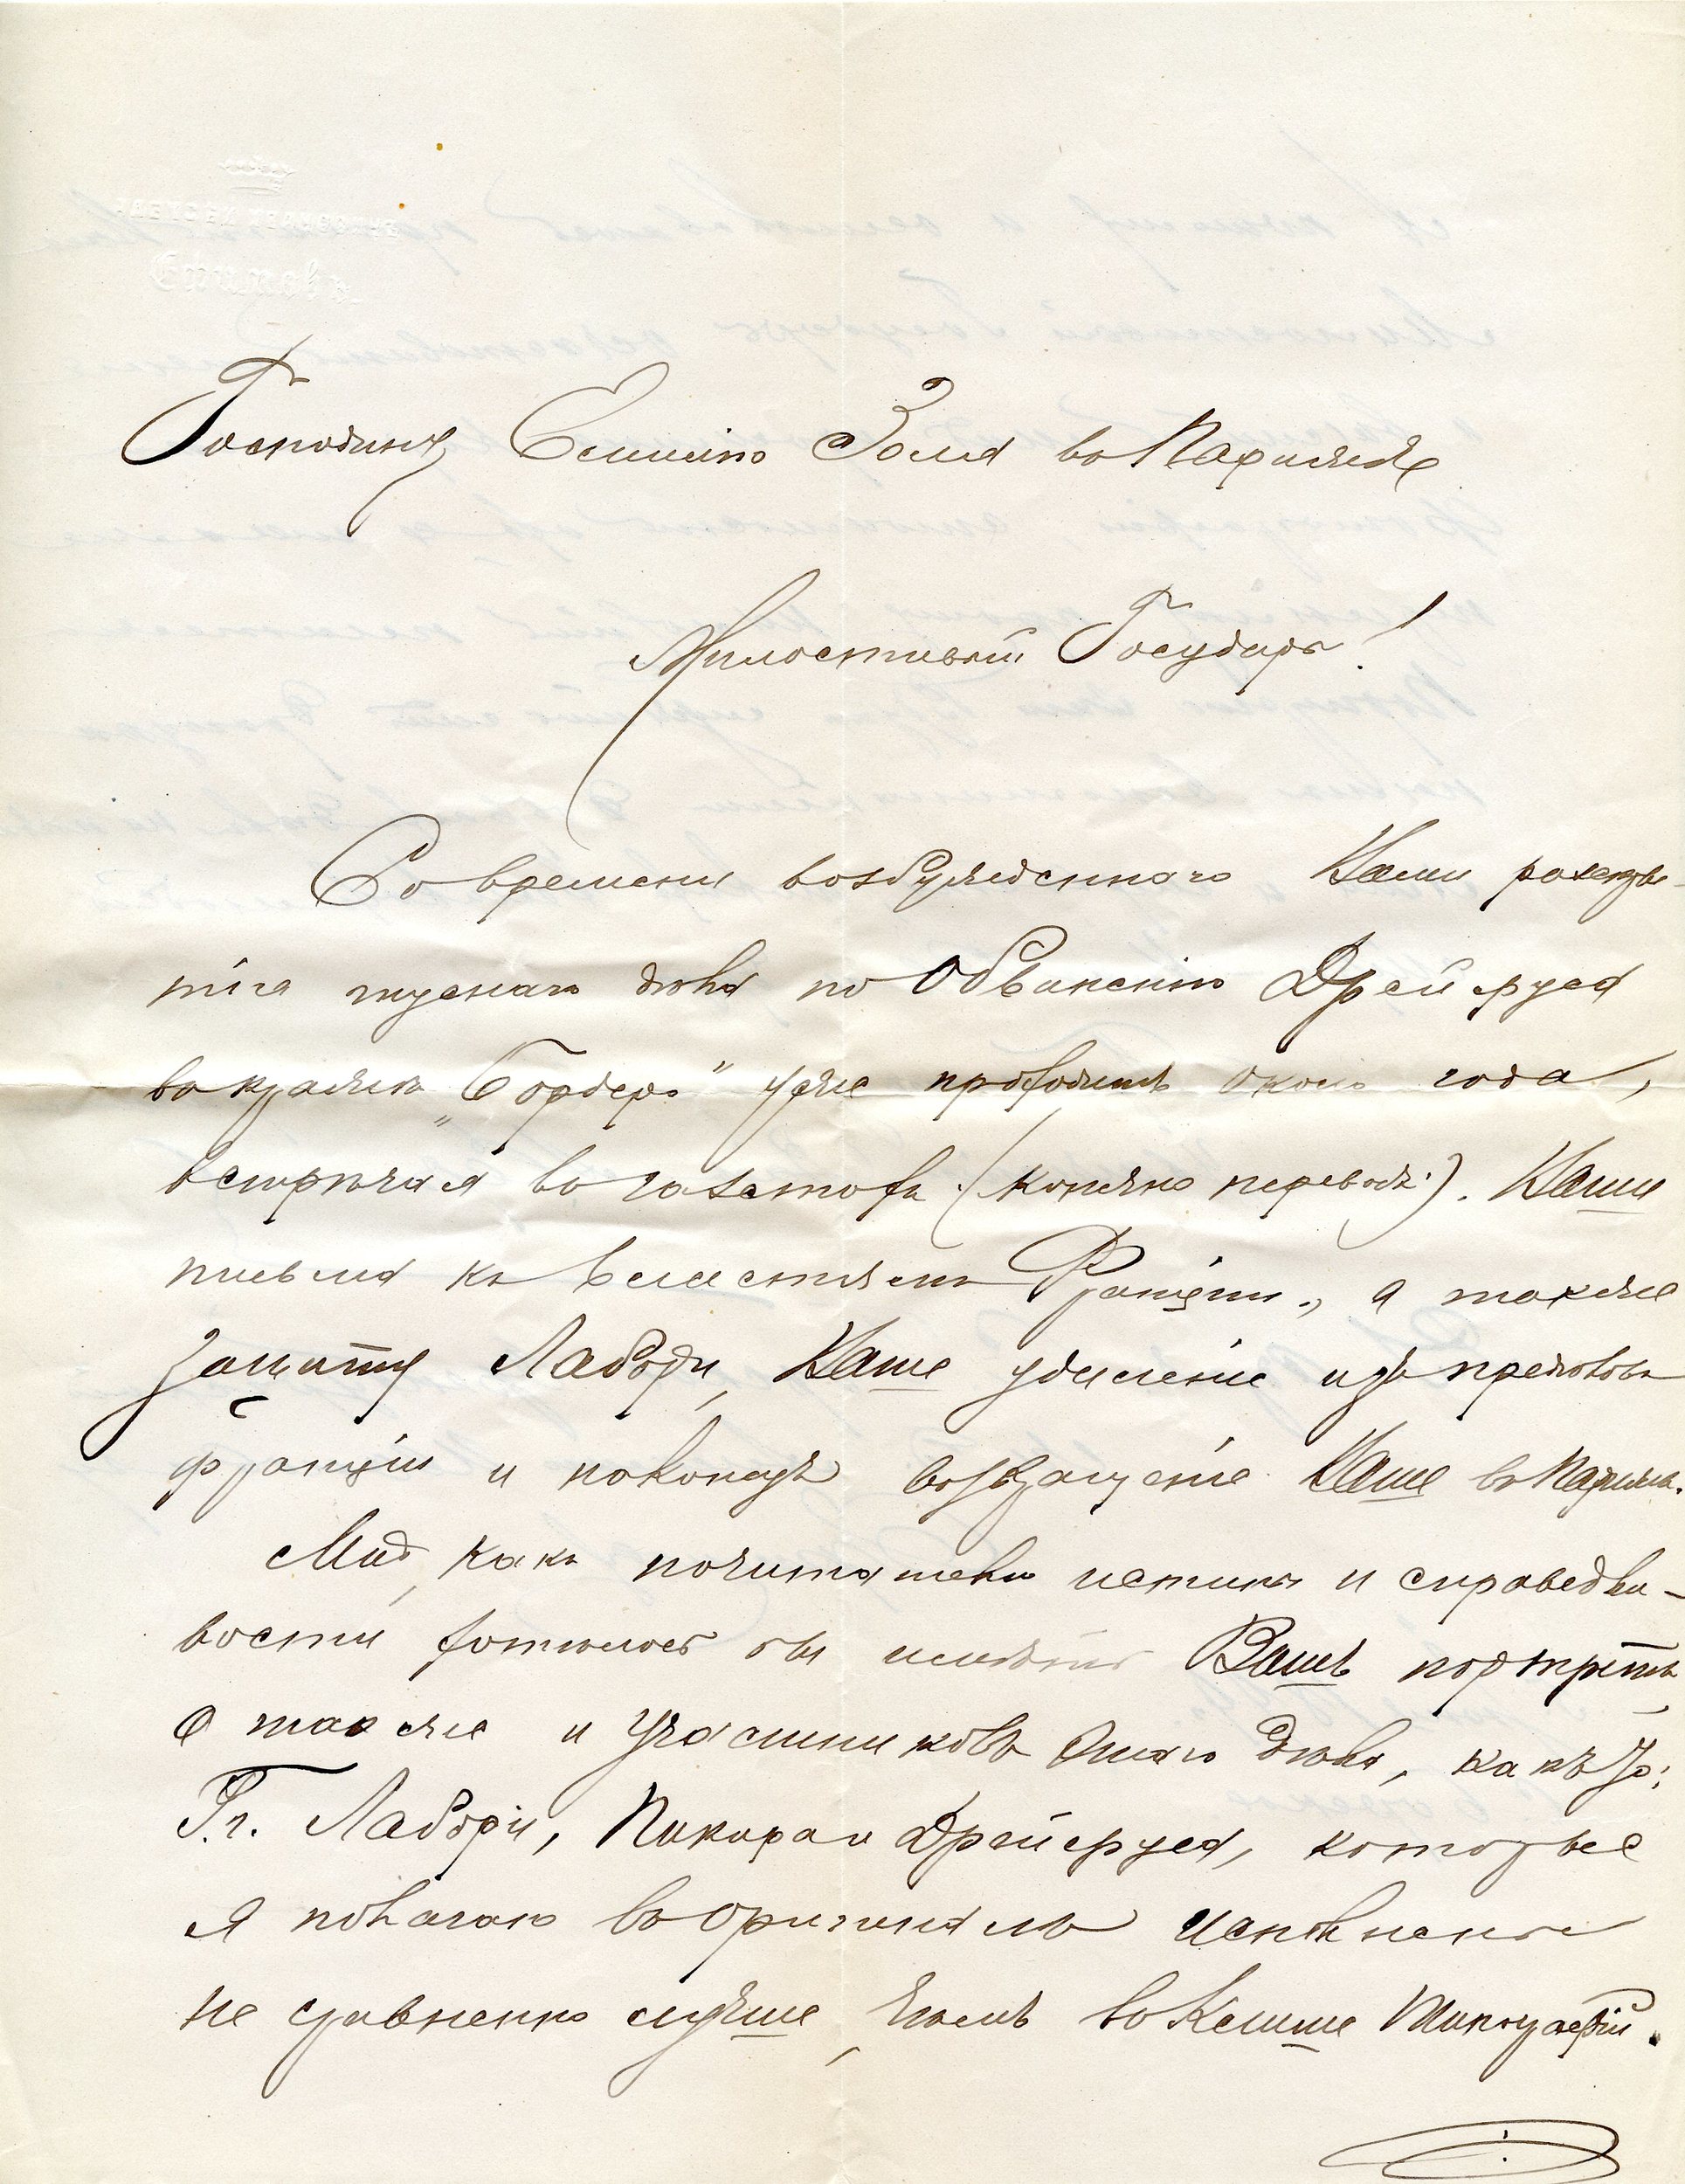 Господину Эемилію Золя въ Парижѣ
Милостивый Государь!
Со времени возбужденнаго Вами
дѣла по обвиненію Дрейфуса
въ кражѣ „Бордеро" уже проходитъ около года,
встрѣчая въ газетахъ (конечно переводъ). Ваши
письма къ властямъ Франціи, а также
защиту Лабори, Ваше удаленіе изъ предѣловъ
Франціи и наконецъ возвращеніе Ваше въ Парижъ.
Мнѣ, какъ почитателю истины и справедли-
вости хотѣлось бы имѣть Вашъ портретъ
а также и участниковъ этаго дѣла, какъ то:
Г.г. Лабори, Пикара и Дрейфуса, которые
я полагаю въ оригиналѣ исполнены
не сравненно лучше, чѣмъ въ нашей